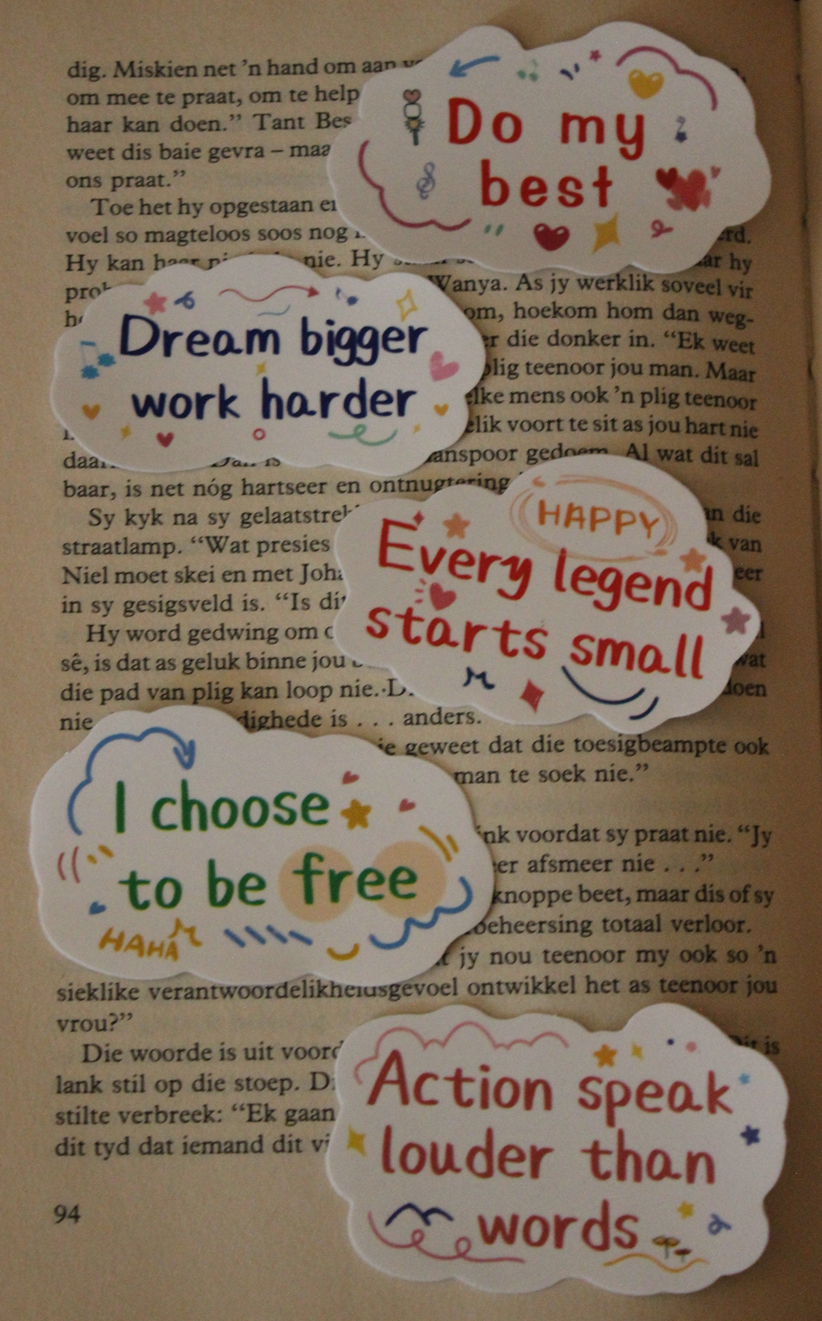 dig. Miskien net 'n hand om aan
om mee te praat, om te help
haar kan doen." Tant Bes
weet dis baie gevra – maa
ons praat."
Do my
best
Toe het hy opgestaan
voel so magteloos soos nog
Hy kan nie. Hy
hy
Wanya. As jy werklik soveel vir
om, hoekom hom dan weg-
die donker in. "Ek weet
plig teenoor jou man. Maar
elke mens ook 'n plig teenoor
elik voort te sit as jou hart nie
Dream bigger
work harder
daar is anspoor gedoem. Al wat dit sal
baar, is net nóg hartseer en ontnugtering
Sy kyk na sy gelaatstrek
an die
straatlamp. "Wat presies
van
Niel moet skei en met Joha
eer
in sy gesigsveld is. "Is dit
HAPPY
Every legend
starts small
Hy word gedwing om
sê, is dat as geluk binne jou
wat
die pad van plig kan loop nie. D
doen
nie dighede is . . . anders.
geweet dat die toesigbeampte ook
man te soek nie."
I choose
to be free
HAHA
ink voordat sy praat nie. "Jy
eer afsmeer nie . . ."
knoppe beet, maar dis of sy
beheersing totaal verloor.
jy nou teenoor my ook so 'n
sieklike verantwoordelikheidsgevoel ontwikkel het as teenoor jou
vrou?"
Die woorde is uit voord
is
lank stil op die stoep. D
stilte verbreek: "Ek gaan
dit tyd dat iemand dit vi
Action speak
louder than
words
94